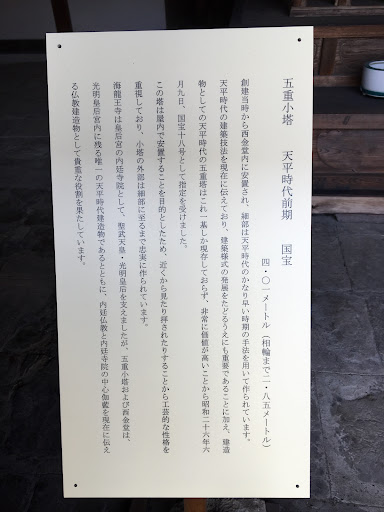 五重小塔　天平時代前期　国宝
四・〇一メートル（相輪まで二・八五メートル）
創建当時から西金堂内に安置され、細部は天平時代のかなり早い時期の手法を用いて作られています。
天平時代の建築技法を現在に伝えており、建築様式の発展をたどるうえにも重要であることに加え、建造
物としての天平時代の五重塔はこれ一基しか現存しておらず、非常に価値が高いことから昭和二十六年六
月九日、国宝十八号として指定を受けました。
この塔は屋内で安置することを目的としたため、近くから見たり拝されたりすることから工芸的な性格を
重視しており、小塔の外部は細部に至るまで忠実に作られています。
海龍王寺は皇后宮の内廷寺院として、聖武天皇・光明皇后を支えましたが、五重小塔および西金堂は、
光明皇后宮内に残る唯一の天平時代建造物であるとともに、内廷仏教と内廷寺院の中心伽藍を現在に伝え
る仏教建造物として貴重な役割を果たしています。